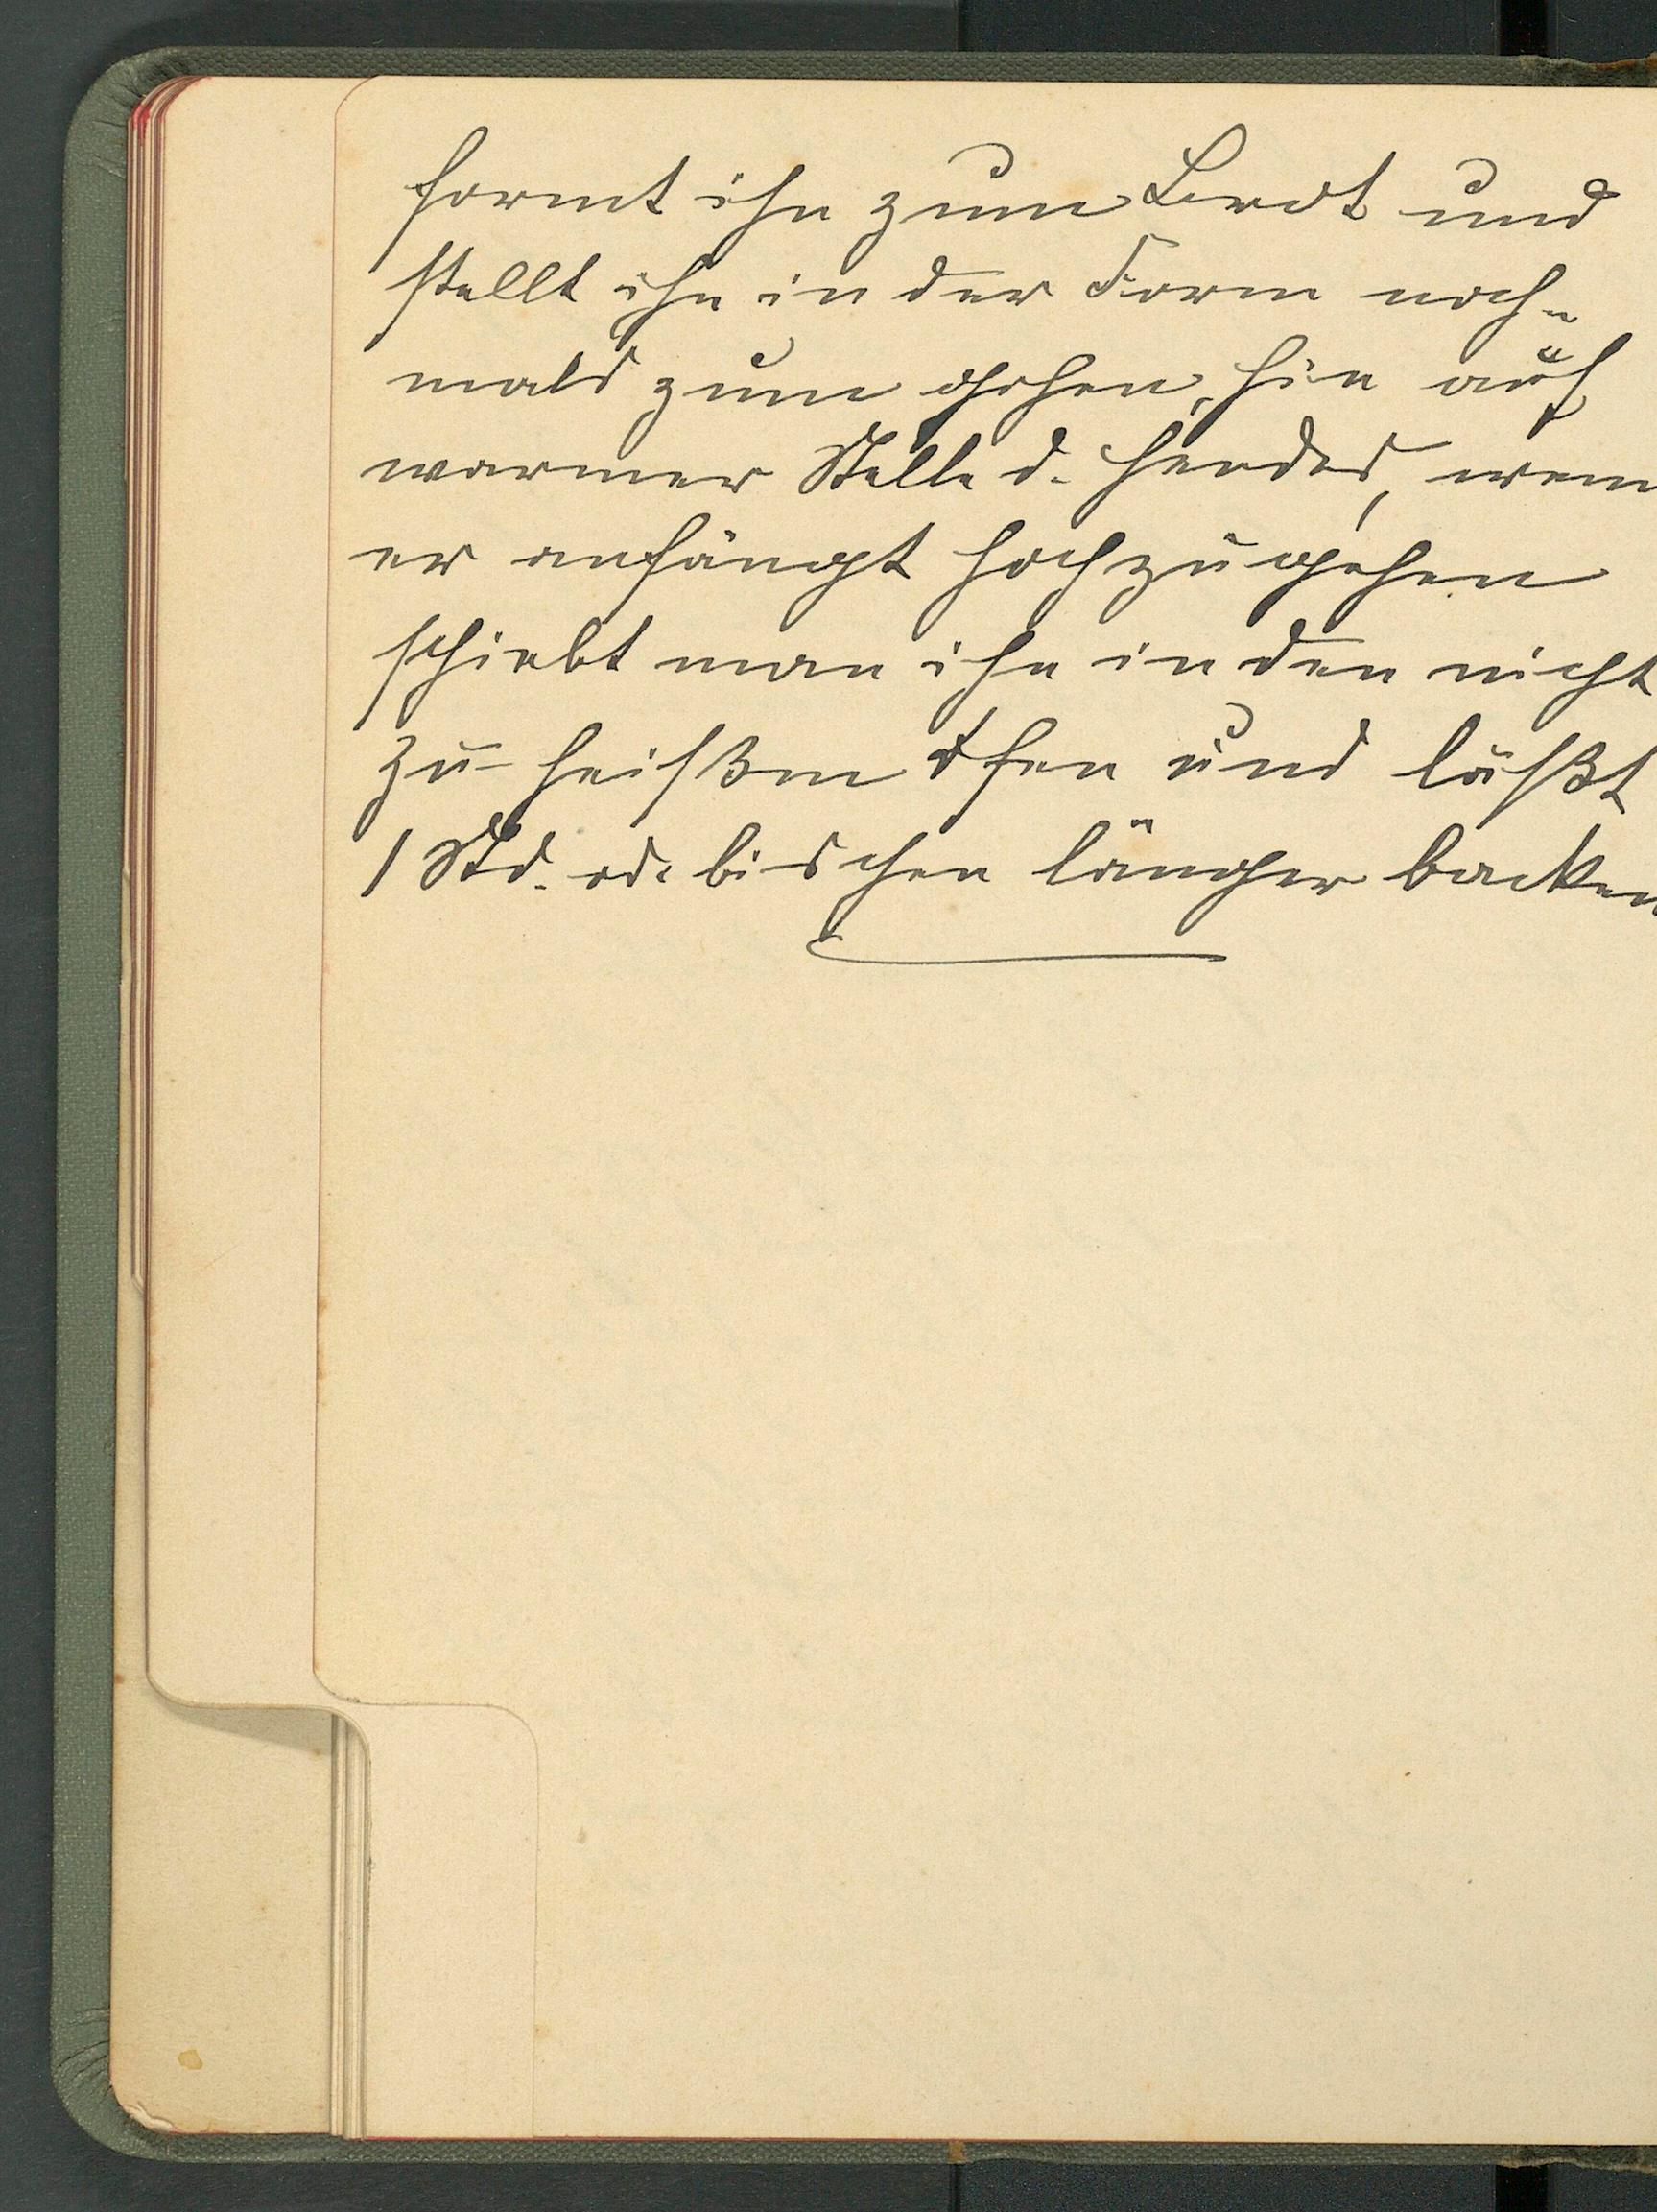 formt ihn zum Brot und
stellt ihn in der Form noch-
mals zum gehen hin auf
warmer Stelle d. Herdes, wenn
er anfängt hochzugehen
schiebt man ihn in den nicht
zu heißen Ofen und läßt
1 Std. od. bischen länger backen